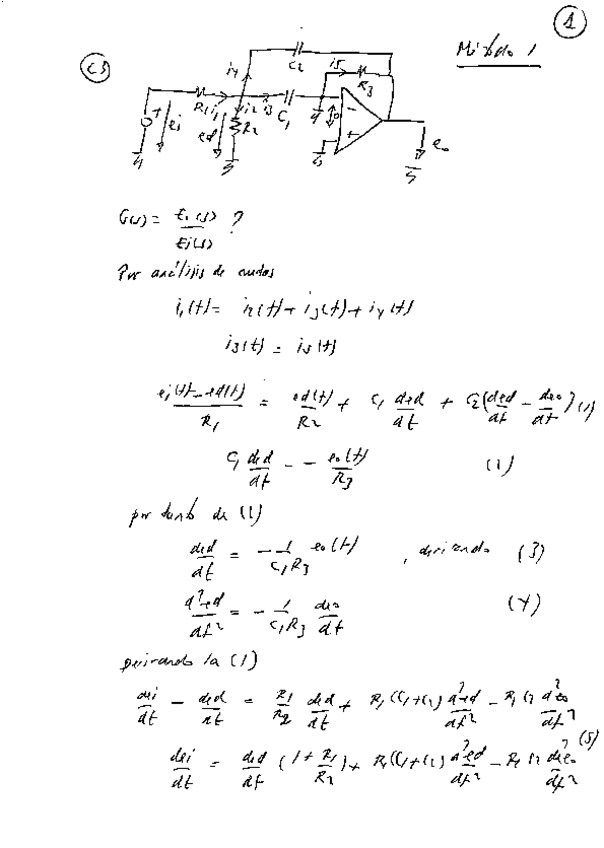 1
C3
Método 1
C2
i4
i5
R3
R1
i1
i2
i3
C1
R2
+
ei
ed
-
+
eo
G(s) = Eo(s) / Ei(s) ?
Por análisis de nudos
i1(t) = i2(t) + i3(t) + i4(t)
i3(t) = i5(t)
(ei(t) - ed(t)) / R1 = ed(t) / R2 + C1 ded/dt + C2 (ded/dt - deo/dt) (1)
C1 ded/dt = - eo(t) / R3 (2)
por tanto de (2)
ded/dt = - 1/(C1R3) eo(t) , derivando (3)
d²ed/dt² = - 1/(C1R3) deo/dt (4)
derivando la (1)
dei/dt - ded/dt = R1/R2 ded/dt + R1(C1+C2) d²ed/dt² - R1C2 d²eo/dt²
dei/dt = ded/dt (1 + R1/R2) + R1(C1+C2) d²ed/dt² - R1C2 d²eo/dt² (5)